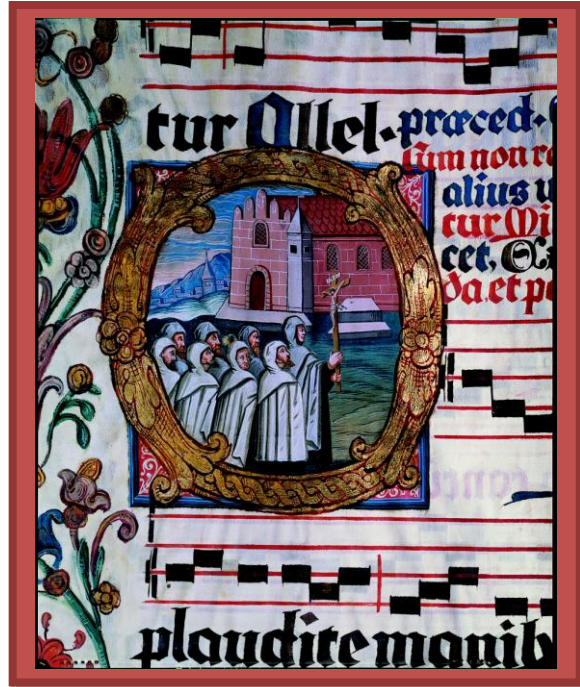 tur Allel.
præced.
sum non
alius
tur
cet,
da. et
plaudite manib